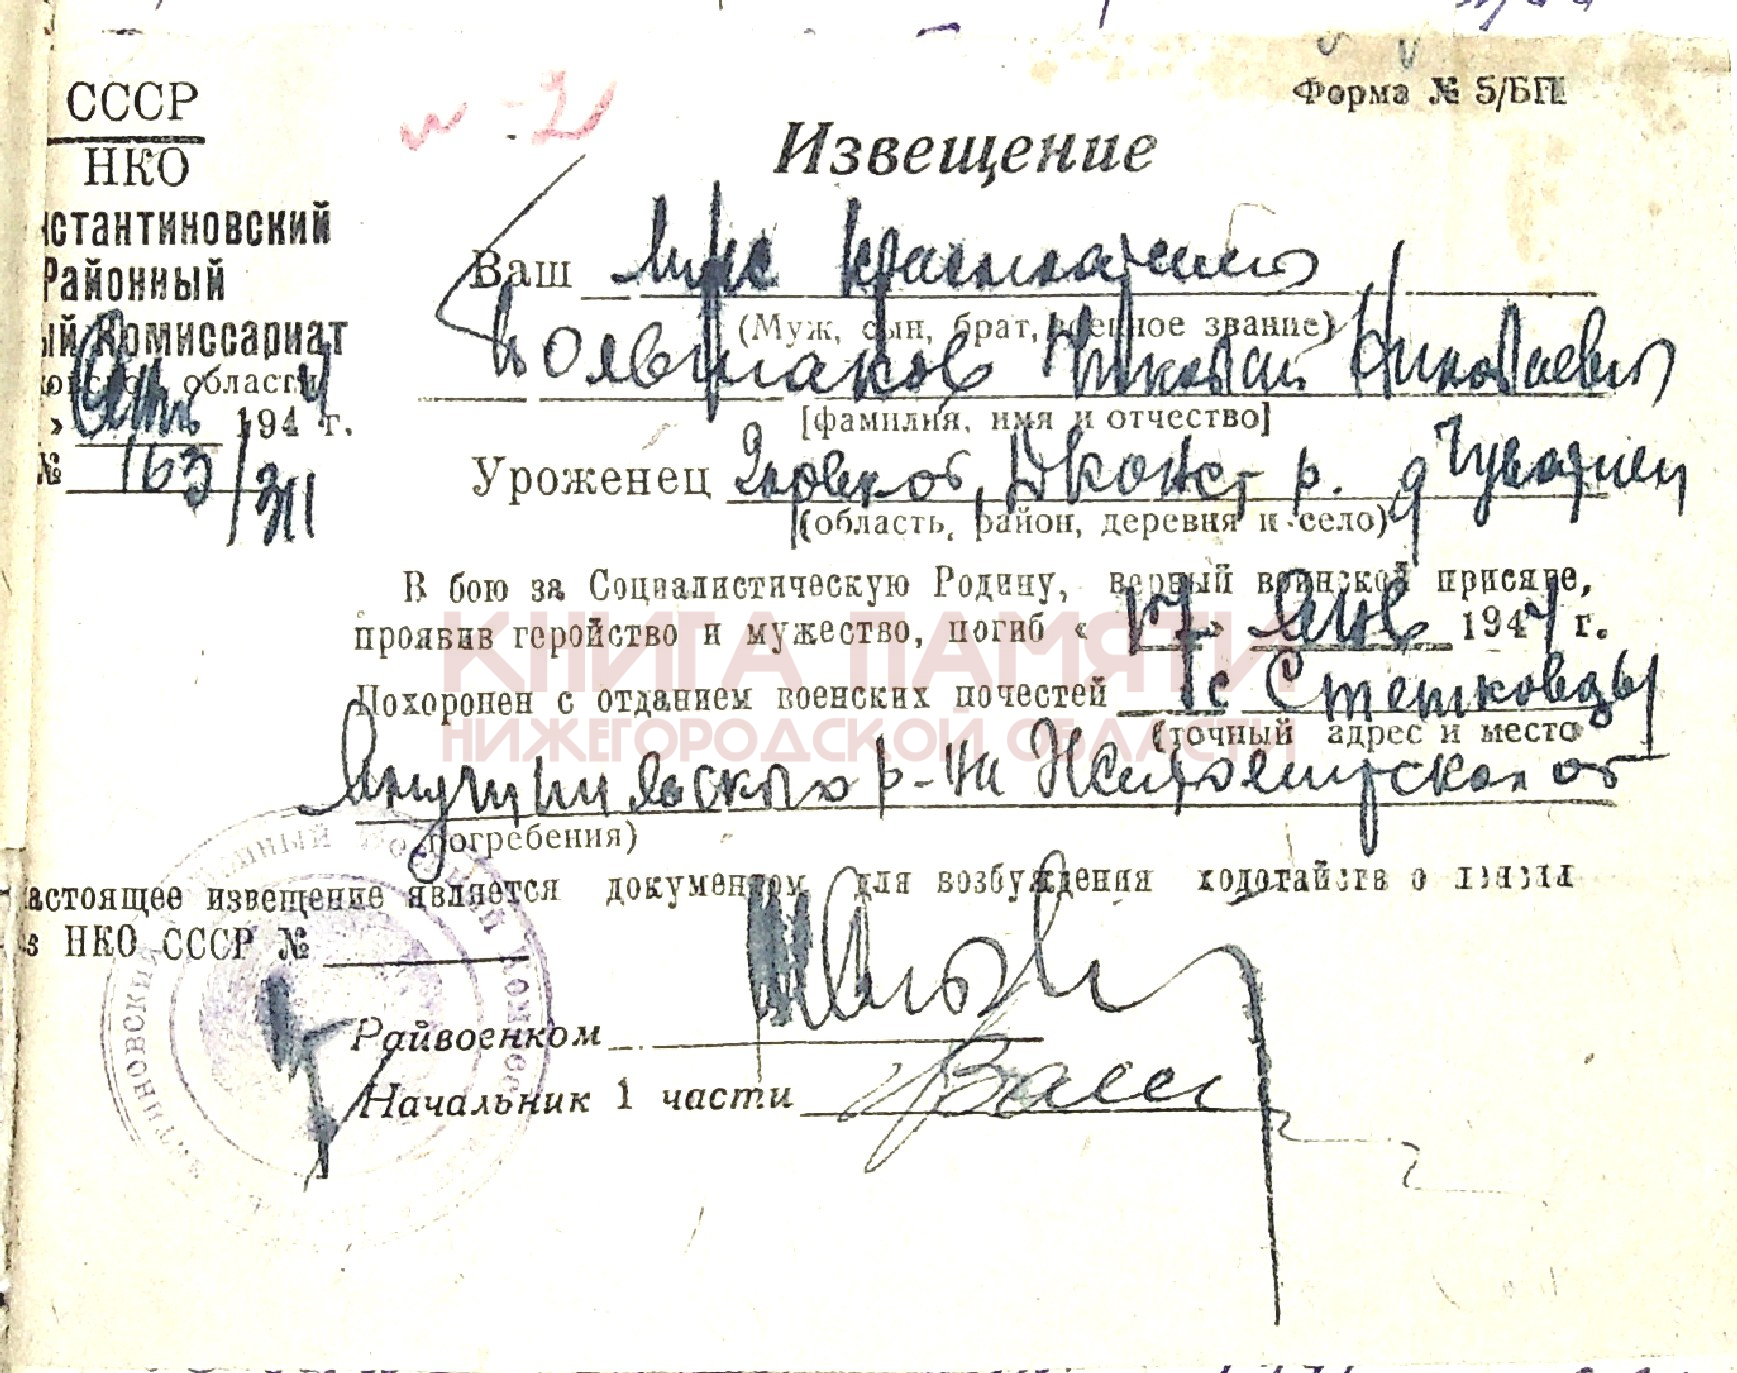 СССР
НКО
нстантиновский
Районный
ый Комиссариат
области
» 194 4 г.
№ 163/
Форма № 5/БП
Извещение
Ваш муж красноармеец
(Муж, сын, брат, военное звание)
Николай Николаевич
[фамилия, имя и отчество]
Уроженец Горьк об, Дконст р. д
(область, район, деревня и село)
В бою за Социалистическую Родину, верный воинской присяге,
проявив геройство и мужество, погиб « 17 » Янв 1944 г.
Похоронен с отданием военских почестей с Стетковцы
(точный адрес и место
р-на Житомирской об
погребения)
астоящее извещение является документом для возбуждения ходотайств о
з НКО СССР №
Райвоенком
Начальник 1 части
КНИГА ПАМЯТИ
НИЖЕГОРОДСКОЙ ОБЛАСТИ